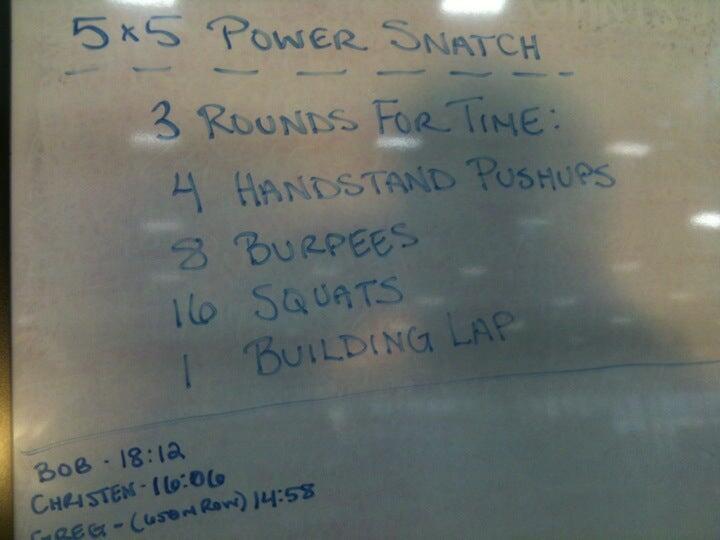 5x5 POWER SNATCH
3 ROUNDS FOR TIME:
4 HANDSTAND PUSHUPS
8 BURPEES
16 SQUATS
1 BUILDING LAP
BOB - 18:12
CHRISTEN - 16:06
GREG - (650M ROW) 14:58